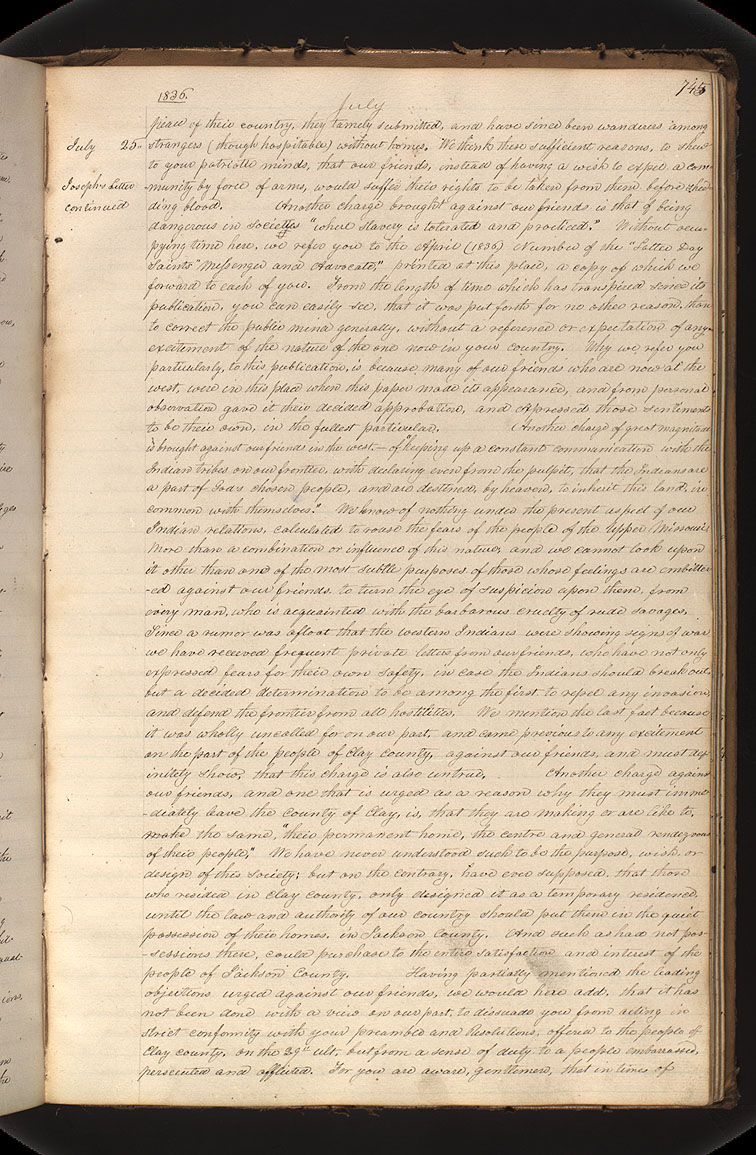 1836.
745
July
peace of their country, they tamely submitted, and have since been wanderers among
July 25 strangers (though hospitable) without homes. We think these sufficient reasons, to shew
to your patriotic minds, that our friends, instead of having a wish to expel a com-
Joseph's letter munity by force of arms, would suffer their rights to be taken from them before shed-
continued ding blood. Another charge brought against our friends is that of being
dangerous in societies "where slavery is tolerated and practiced." Without occu-
pying time here, we refer you to the April (1836) Number of the "Latter Day
Saints' Messenger and Advocate," printed at this place, a copy of which we
forward to each of you. From the length of time which has transpired since its
publication, you can easily see, that it was put forth for no other reason, than
to correct the public mind generally, without a reference or expectation of any
excitement of the nature of the one now in your country. Why we refer you
particularly, to this publication, is because many of our friends who are now at the
west, were in this place when this paper made its appearance, and from personal
observation gave it their decided approbation, and expressed those sentiments
to be their own, in the fullest particular. Another charge of great magnitude
is brought against our friends in the west.— of "keeping up a constant communication with the
Indian tribes on our frontier, with declaring even from the pulpit, that the Indians are
a part of God's chosen people, and are destined, by heaven, to inherit this land, in
common with themselves." We know of nothing under the present aspect of our
Indian relations, calculated to rouse the fears of the people of the Upper Missouri,
more than a combination or influence of this nature, and we cannot look upon
it other than one of the most subtle purposes of those whose feelings are embitter
-ed against our friends, to turn the eye of suspicion upon them, from
every man, who is acquainted with the barbarous cruelty of rude savages.
Since a rumor was afloat that the western Indians were showing signs of war
we have received frequent private letters from our friends, who have not only
expressed fears for their own safety, in case the Indians should break out,
but a decided determination to be among the first to repel any invasion
and defend the frontier from all hostilities. We mention the last fact because
it was wholly uncalled for on our part, and came previous to any excitement
on the part of the people of Clay County, against our friends, and must def-
initely show, that this charge is also untrue. Another charge against
our friends, and one that is urged as a reason why they must imme
-diately leave the County of Clay, is, that they are making or are like to,
make the same, "their permanent home, the centre and general rendezvous
of their people." We have never understood such to be the purpose, wish or
design of this Society; but on the contrary, have ever supposed, that those
who resided in Clay County, only designed it as a temporary residence,
until the law and authority of our country should put them in the quiet
possession of their homes, in Jackson County. And such as had not pos-
-sessions there, could purchase to the entire satisfaction and interest of the
people of Jackson County. Having partially mentioned the leading
objections urged against our friends, we would here add, that it has
not been done with a view on our part, to dissuade you from acting in
strict conformity with your preamble and Resolutions, offered to the people of
Clay county, on the 29th ult, but from a sense of duty to a people embarrassed,
persecuted and afflicted. For you are aware, gentlemen, that in times of